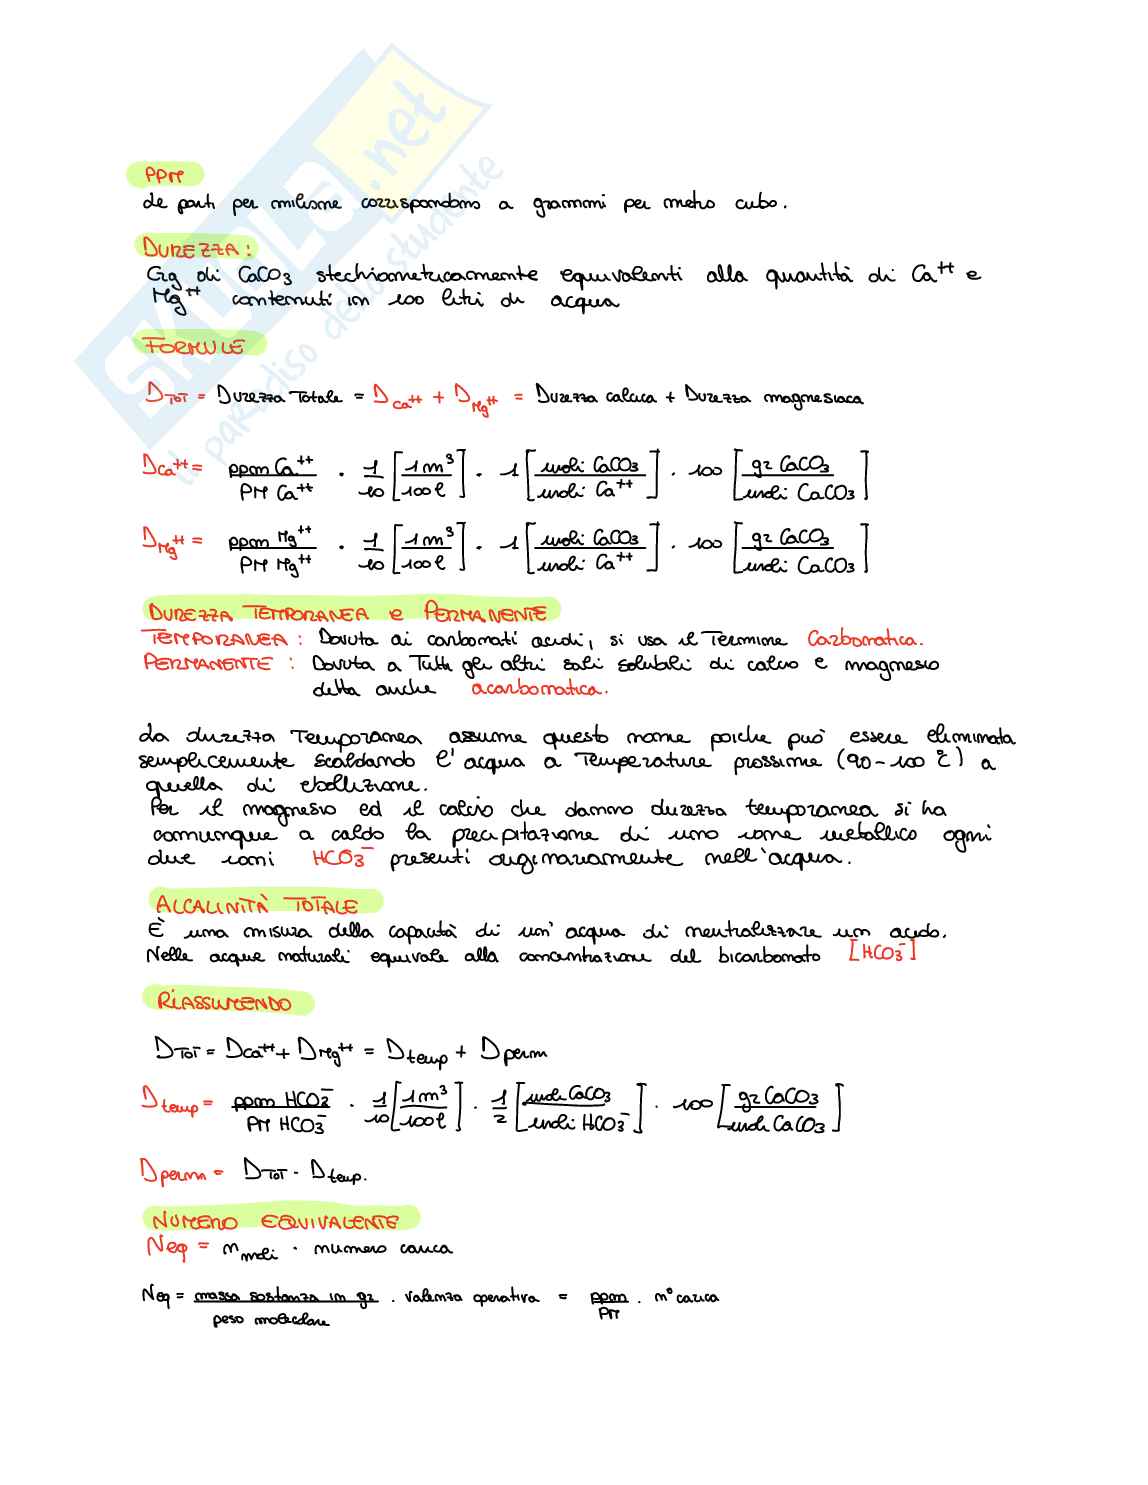 SKUOLA.net
il paradiso dello studente
PPM
Le parti per milione corrispondono a grammi per metro cubo.
DUREZZA:
Gg di CaCO3 stechiometricamente equivalenti alla quantità di Ca++ e
Mg++ contenuti in 100 litri di acqua
FORMULE
DTOT = Durezza Totale = DCa++ + DMg++ = Durezza calcica + Durezza magnesiaca
DCa++ = ppm Ca++ / PM Ca++ · 1/10 [1m³/100l] · 1 [moli CaCO3 / moli Ca++] · 100 [gr CaCO3 / moli CaCO3]
DMg++ = ppm Mg++ / PM Mg++ · 1/10 [1m³/100l] · 1 [moli CaCO3 / moli Ca++] · 100 [gr CaCO3 / moli CaCO3]
DUREZZA TEMPORANEA e PERMANENTE
TEMPORANEA: Dovuta ai carbonati acidi, si usa il Termine Carbonatica.
PERMANENTE: Dovuta a Tutti gli altri sali solubili di calcio e magnesio
detta anche acarbonatica.
La durezza Temporanea assume questo nome poiche può essere eliminata
semplicemente scaldando l'acqua a Temperature prossime (90-100 °C) a
quella di ebollizione.
Per il magnesio ed il calcio che danno durezza temporanea si ha
comunque a caldo la precipitazione di uno ione metallico ogni
due ioni HCO3⁻ presenti originariamente nell'acqua.
ALCALINITÀ TOTALE
È una misura della capacità di un'acqua di neutralizzare un acido.
Nelle acque naturali equivale alla concentrazione del bicarbonato [HCO3⁻]
RIASSUMENDO
DTOT = DCa++ + DMg++ = Dtemp + Dperm
Dtemp = ppm HCO3⁻ / PM HCO3⁻ · 1/10 [1m³/100l] · 1/2 [moli CaCO3 / moli HCO3⁻] · 100 [gr CaCO3 / moli CaCO3]
Dperm = DTOT - Dtemp.
NUMERO EQUIVALENTE
Neq = nmoli · numero carica
Neq = massa sostanza in gr / peso molecolare · valenza operativa = ppm / PM · n° carica